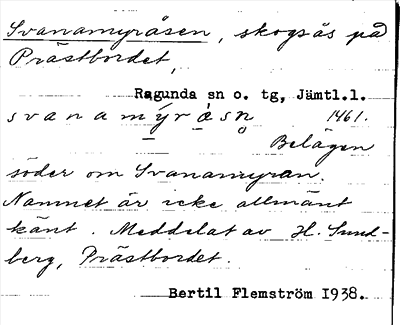 Svanamyråsen, skogsås på
Prästbordet,
Ragunda sn o. tg, Jämtl.l.
svanamyråsn 1461.
Belägen
söder om Svanamyran.
Namnet är icke allmänt
känt. Meddelat av H. Sund-
berg, Prästbordet.
Bertil Flemström 1938.